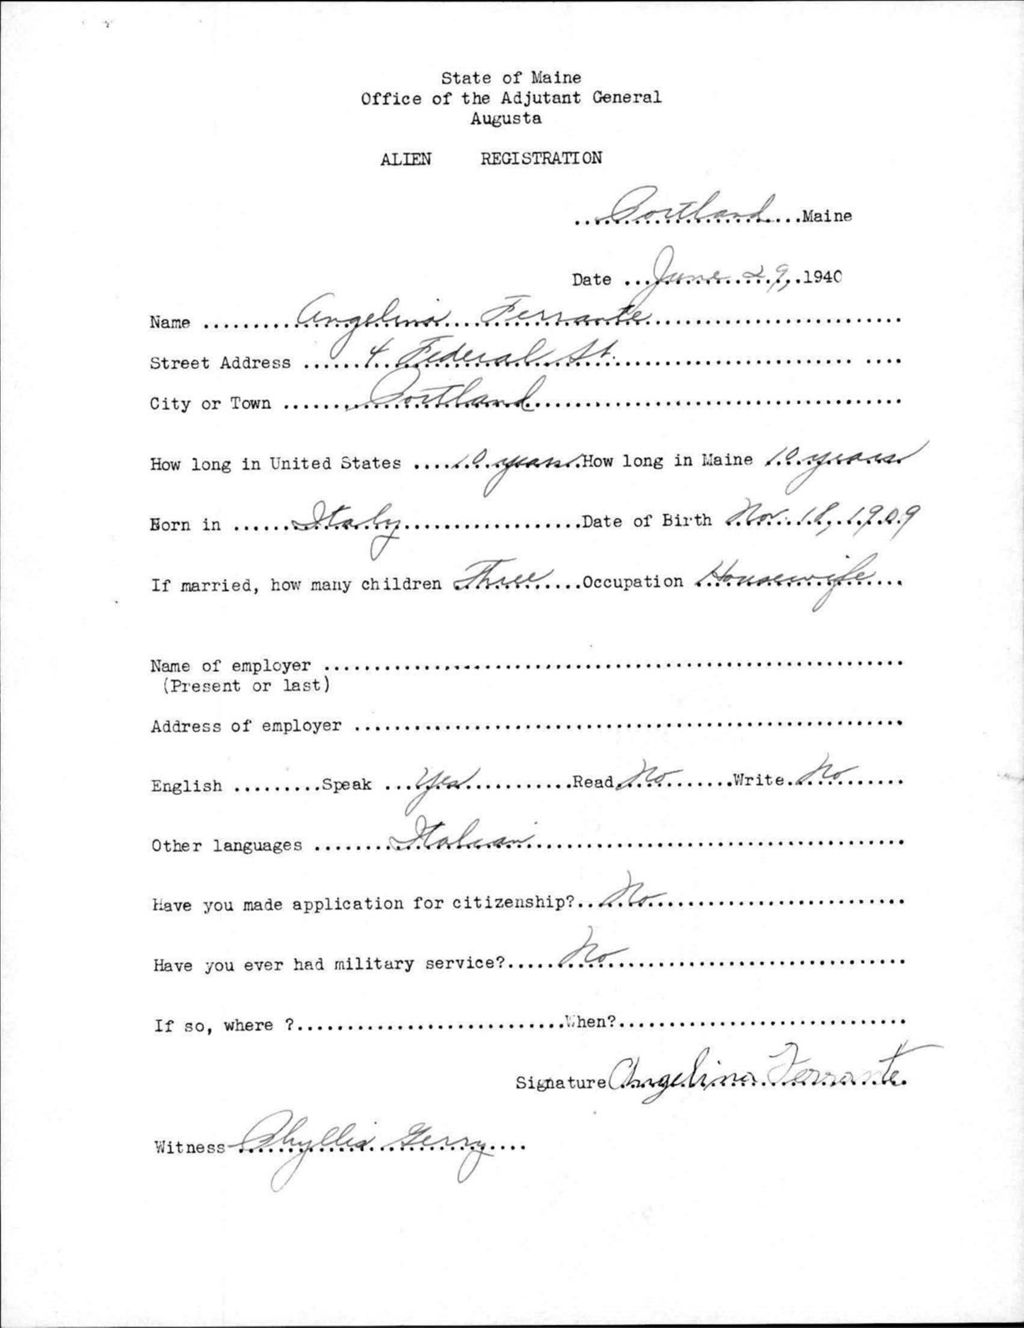 State of Maine
Office of the Adjutant General
Augusta
ALIEN REGISTRATION
Portland Maine
Date June 29, 1940
Name Angelina Ferrante
Street Address 4 Federal St.
City or Town Portland
How long in United States 10 years How long in Maine 10 years
Born in Italy Date of Birth Nov. 18, 1909
If married, how many children Three Occupation Housewife
Name of employer
(Present or last)
Address of employer
English Speak Yes Read No Write No
Other languages Italian
Have you made application for citizenship? No
Have you ever had military service? No
If so, where ? When?
Signature Angelina Ferrante
Witness Phyllis Gerry